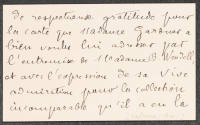 de respectueuse gratitude pour
la carte que Madame Gardner a
bien voulu lui adresser par
l'entremise de Madame
et avec l'expression de sa vive
admiration pour la collection
incomparable qu'il a eu la